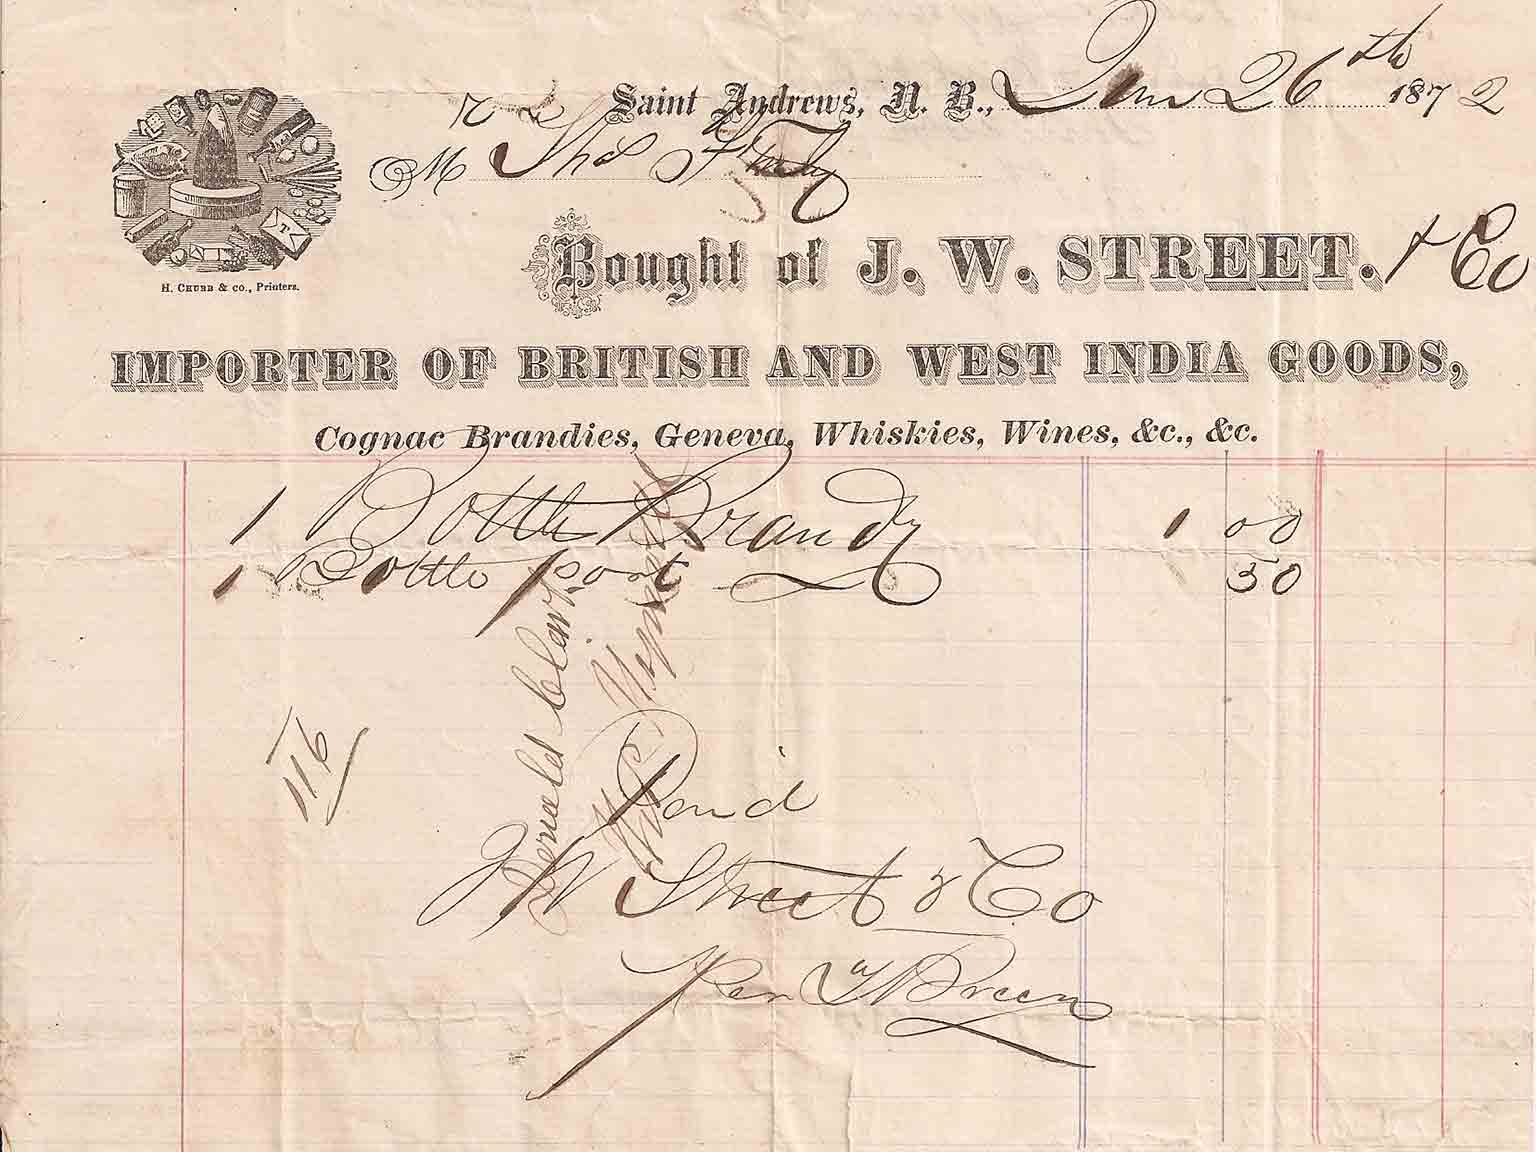 Saint Andrews, N. B., Jan 26th 1872
M Thos
Bought of J. W. STREET. & Co
H. CHUBB & CO., Printers.
IMPORTER OF BRITISH AND WEST INDIA GOODS,
Cognac Brandies, Geneva, Whiskies, Wines, &c., &c.
1 Bottle Brandy 1 00
1 Bottle port 50
116
Paid
J W Street & Co
Per Breen